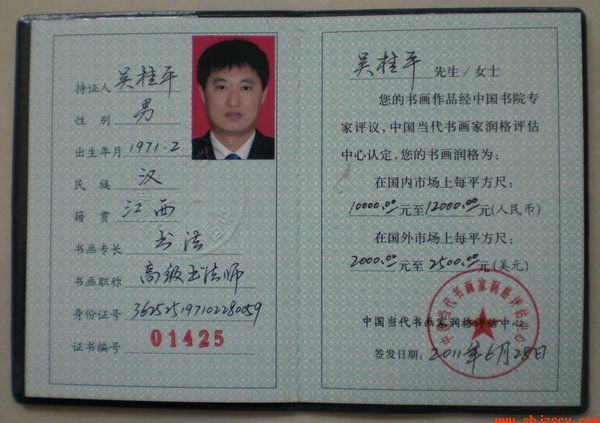 持证人 吴桂平
性别 男
出生年月 1971.2
民族 汉
籍贯 江西
书画专长 书法
书画职称 高级书法师
身份证号 362525197102280059
证书编号 01425
吴桂平 先生/女士
您的书画作品经中国书院专
家评议,中国当代书画家润格评估
中心认定,您的书画润格为:
在国内市场上每平方尺:
10000.00元至12000.00元(人民币)
在国外市场上每平方尺:
2000.00元至2500.00元(美元)
中国当代书画家润格评估中心
中国当代书画家润格评估中心
签发日期: 2011年6月28日